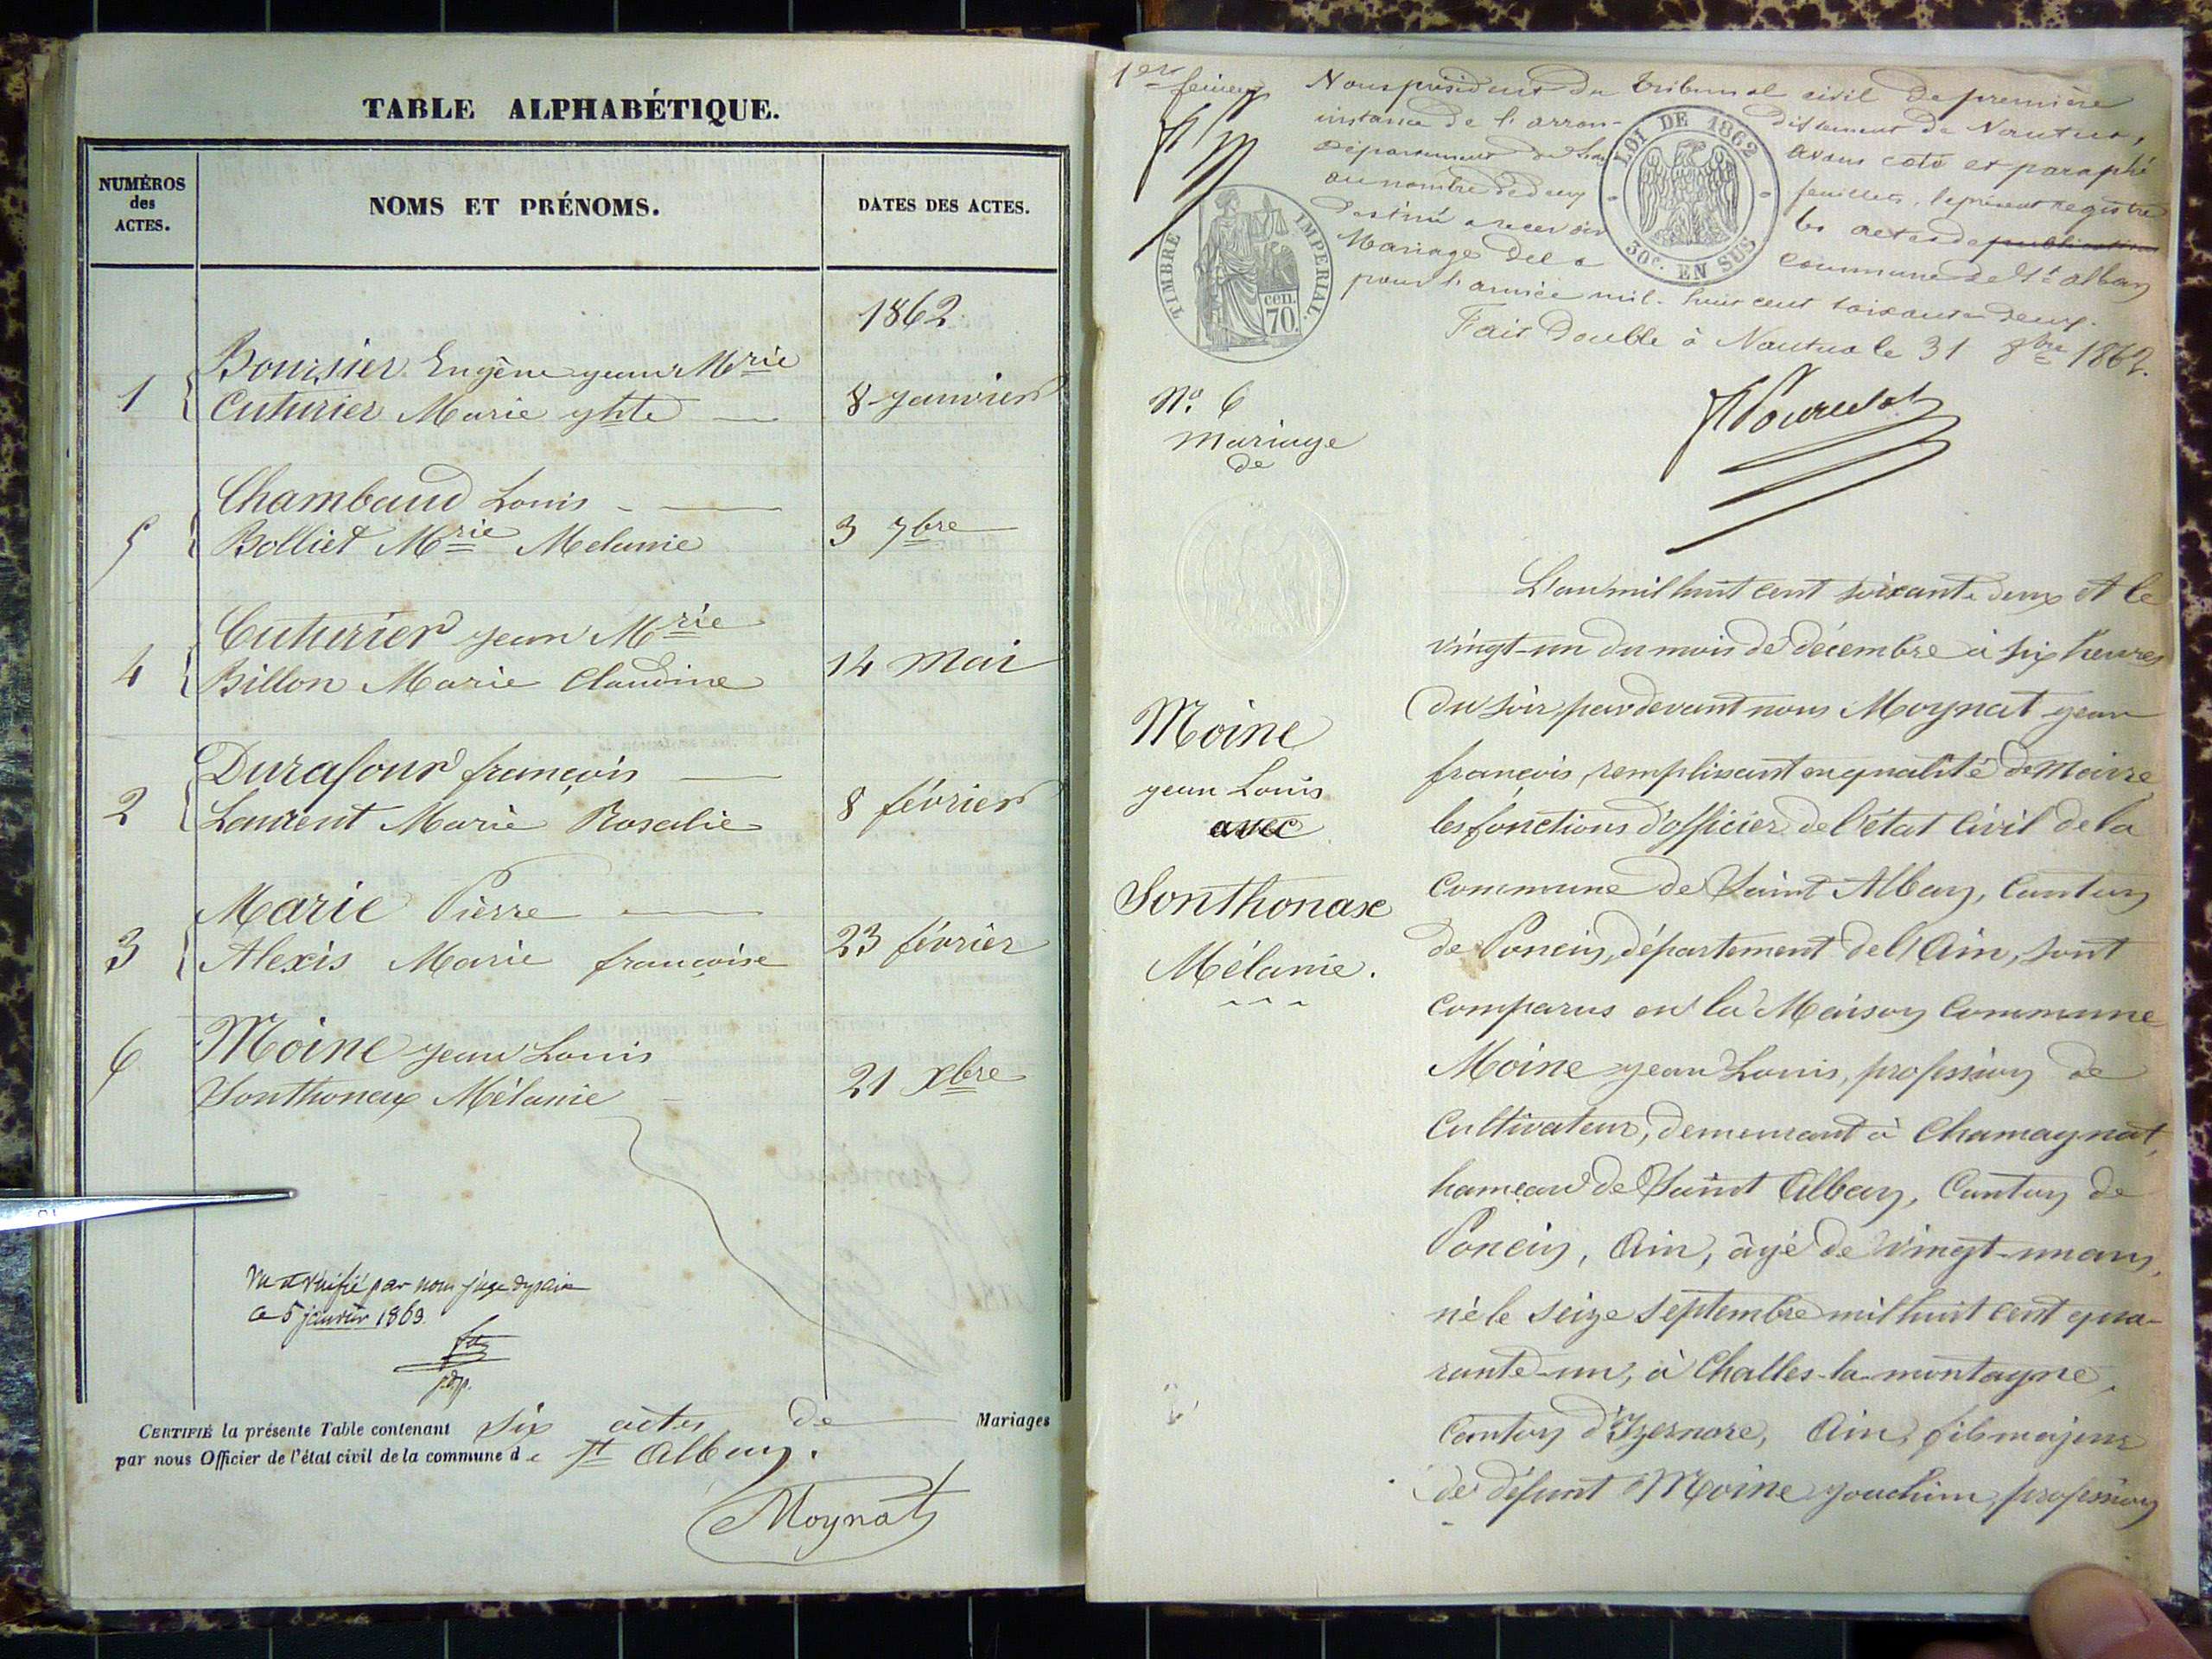 TABLE ALPHABÉTIQUE.
NUMÉROS
des
ACTES.
NOMS ET PRÉNOMS.
DATES DES ACTES.
1862
Boursier Eugène jean Mrie
1 { Cuturier Marie yhte 8 janvier
Chambaud Louis
5 { Bolliet Mrie Melanie 3 7bre
Cuturier jean Mrie
4 { Billon Marie Claudine 14 Mai
Durafour françois
2 { Laurent Marie Rosalie 8 février
Marie Pierre
3 { Alexis Marie françoise 23 février
6 Moine jean Louis
Sonthonax Mélanie 21 Xbre
Vu et vérifié par nous juge de paix
ce 5 janvier 1863.
CERTIFIÉ la présente Table contenant Six actes de Mariages
par nous Officier de l'état civil de la commune de St Alban.
Moynat
1er feuillet
Nous président du tribunal civil de première
instance de l'arrondissement de Nantua,
département de l'ain avons coté et paraphé
au nombre de deux feuillets, le présent registre
destiné a recevoir les actes de publications
Mariage de la commune de St alban
pour l'année mil-huit cent soixante deux.
Fait Double à Nantua le 31 8bre 1862.
LOI DE 1862
30c. EN SUS
TIMBRE IMPERIAL.
cen.
70.
No. 6
Mariage
de
Moine
jean Louis
avec
Sonthonax
Mélanie.
L'an mil huit cent soixante deux et le
vingt-un du mois de décembre à six heures
du soir, par devant nous Moynat jean
françois, remplissant en qualité de Maire
les fonctions d'officier de l'état Civil de la
Commune de Saint Alban, Canton
de Poncin, département de l'Ain, sont
comparus en la Maison Commune
Moine jean Louis, profession de
Cultivateur, demeurant à Chamagnat,
hameau de Saint Alban, Canton de
Poncin, Ain, âgé de vingt-un ans,
né le seize septembre mil huit cent qua-
rante-un, à Challes-la-montagne,
Canton d'Izernore, Ain, fils majeur
de défunt Moine jouachim, profession